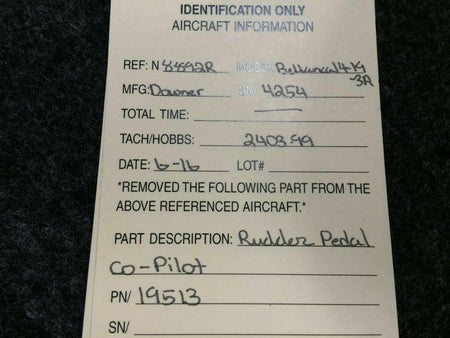 IDENTIFICATION ONLY
AIRCRAFT INFORMATION
REF: N 8892R MODEL: Bellanca 14-19
-3A
MFG: Downer SN: 4254
TOTAL TIME: —
TACH/HOBBS: 2403.99
DATE: 6-16 LOT#
*REMOVED THE FOLLOWING PART FROM THE
ABOVE REFERENCED AIRCRAFT.*
PART DESCRIPTION: Rudder Pedal
Co-Pilot
PN/ 19513
SN/